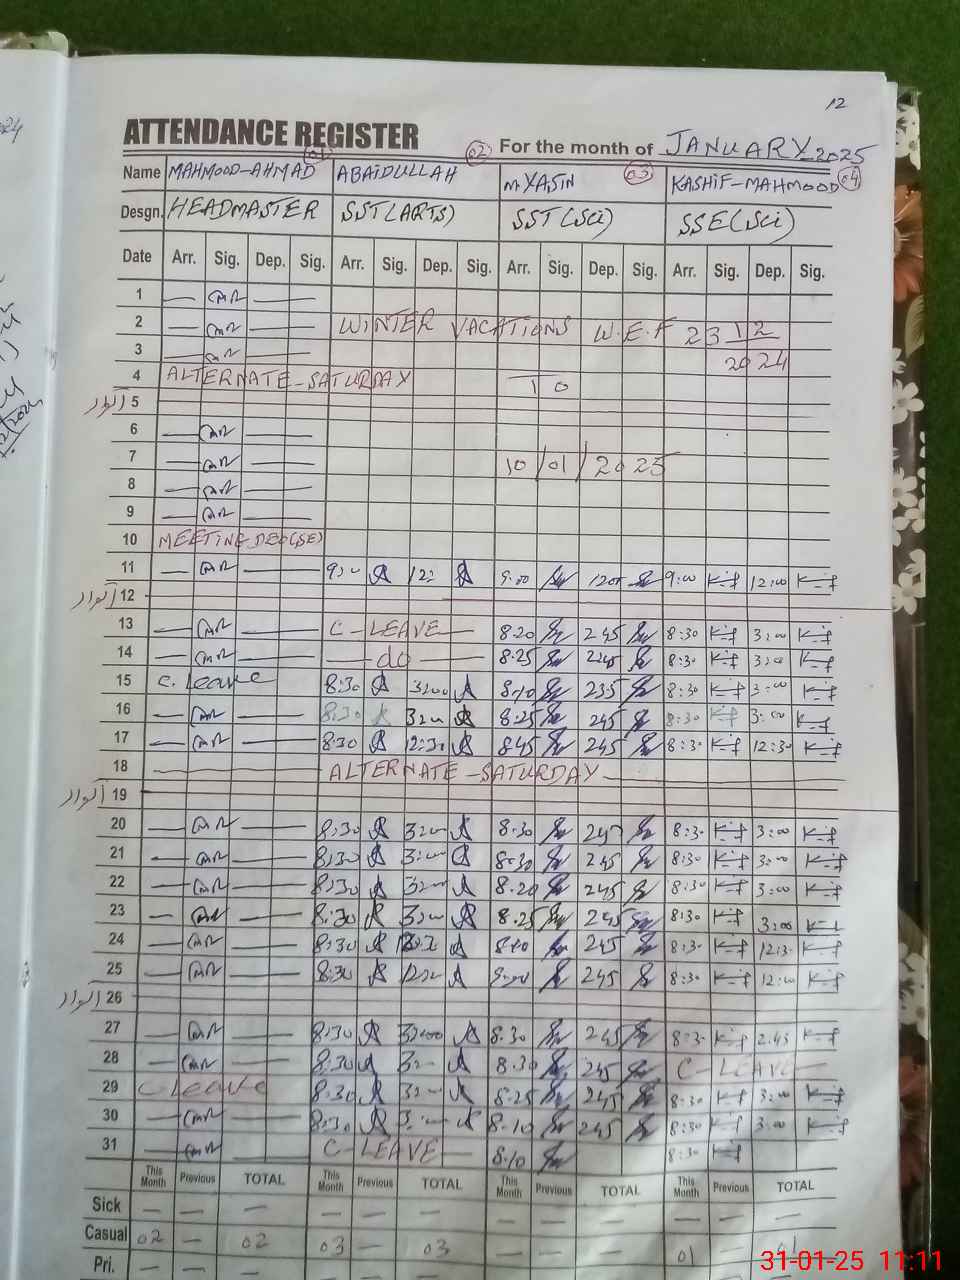 12
ATTENDANCE REGISTER For the month of JANUARY-2025
Name MAHMOOD-AHMAD 01 ABAIDULLAH 02 M YASIN 03 KASHIF-MAHMOOD 04
Desgn. HEADMASTER SST(ARTS) SST(Sci) SSE(Sci)
Date Arr. Sig. Dep. Sig. Arr. Sig. Dep. Sig. Arr. Sig. Dep. Sig. Arr. Sig. Dep. Sig.
1
2 WINTER VACATIONS W.E.F 23 12
3 2024
4 ALTERNATE-SATURDAY TO
اتوار 5
6
7 10/01/2025
8
9
10 MEETING DEO(SE)
11 9:00 12: 9:00 1200 9:00 12:00
اتوار 12
13 C-LEAVE 8:20 245 8:30 3:00
14 do 8:25 245 8:30 3:00
15 C. Leave 8:30 3:00 8:10 235 8:30 3:00
16 8:30 3:00 8:25 245 8:30 3:00
17 8:30 12:30 845 245 8:30 12:30
18 ALTERNATE-SATURDAY
اتوار 19
20 8:30 3:00 8:30 245 8:30 3:00
21 8:30 3:00 8:30 245 8:30 3:00
22 8:30 3:00 8:20 245 8:30 3:00
23 8:30 3:00 8:25 245 8:30 3:00
24 8:30 8:10 245 8:30 12:30
25 8:30 245 8:30 12:00
اتوار 26
27 8:30 3:00 8:30 245 8:30 2:45
28 8:30 3:00 8:30 245 C-LEAVE
29 C Leave 8:30 3:00 8:25 245 8:30 3:00
30 8:30 3:00 8:10 245 8:30 3:00
31 C-LEAVE 8:10 8:30
This Month Previous TOTAL This Month Previous TOTAL This Month Previous TOTAL This Month Previous TOTAL
Sick — — — — — — — — — — — —
Casual 02 — 02 03 — 03 — — — 01 — 01
Pri.
31-01-25 11:11